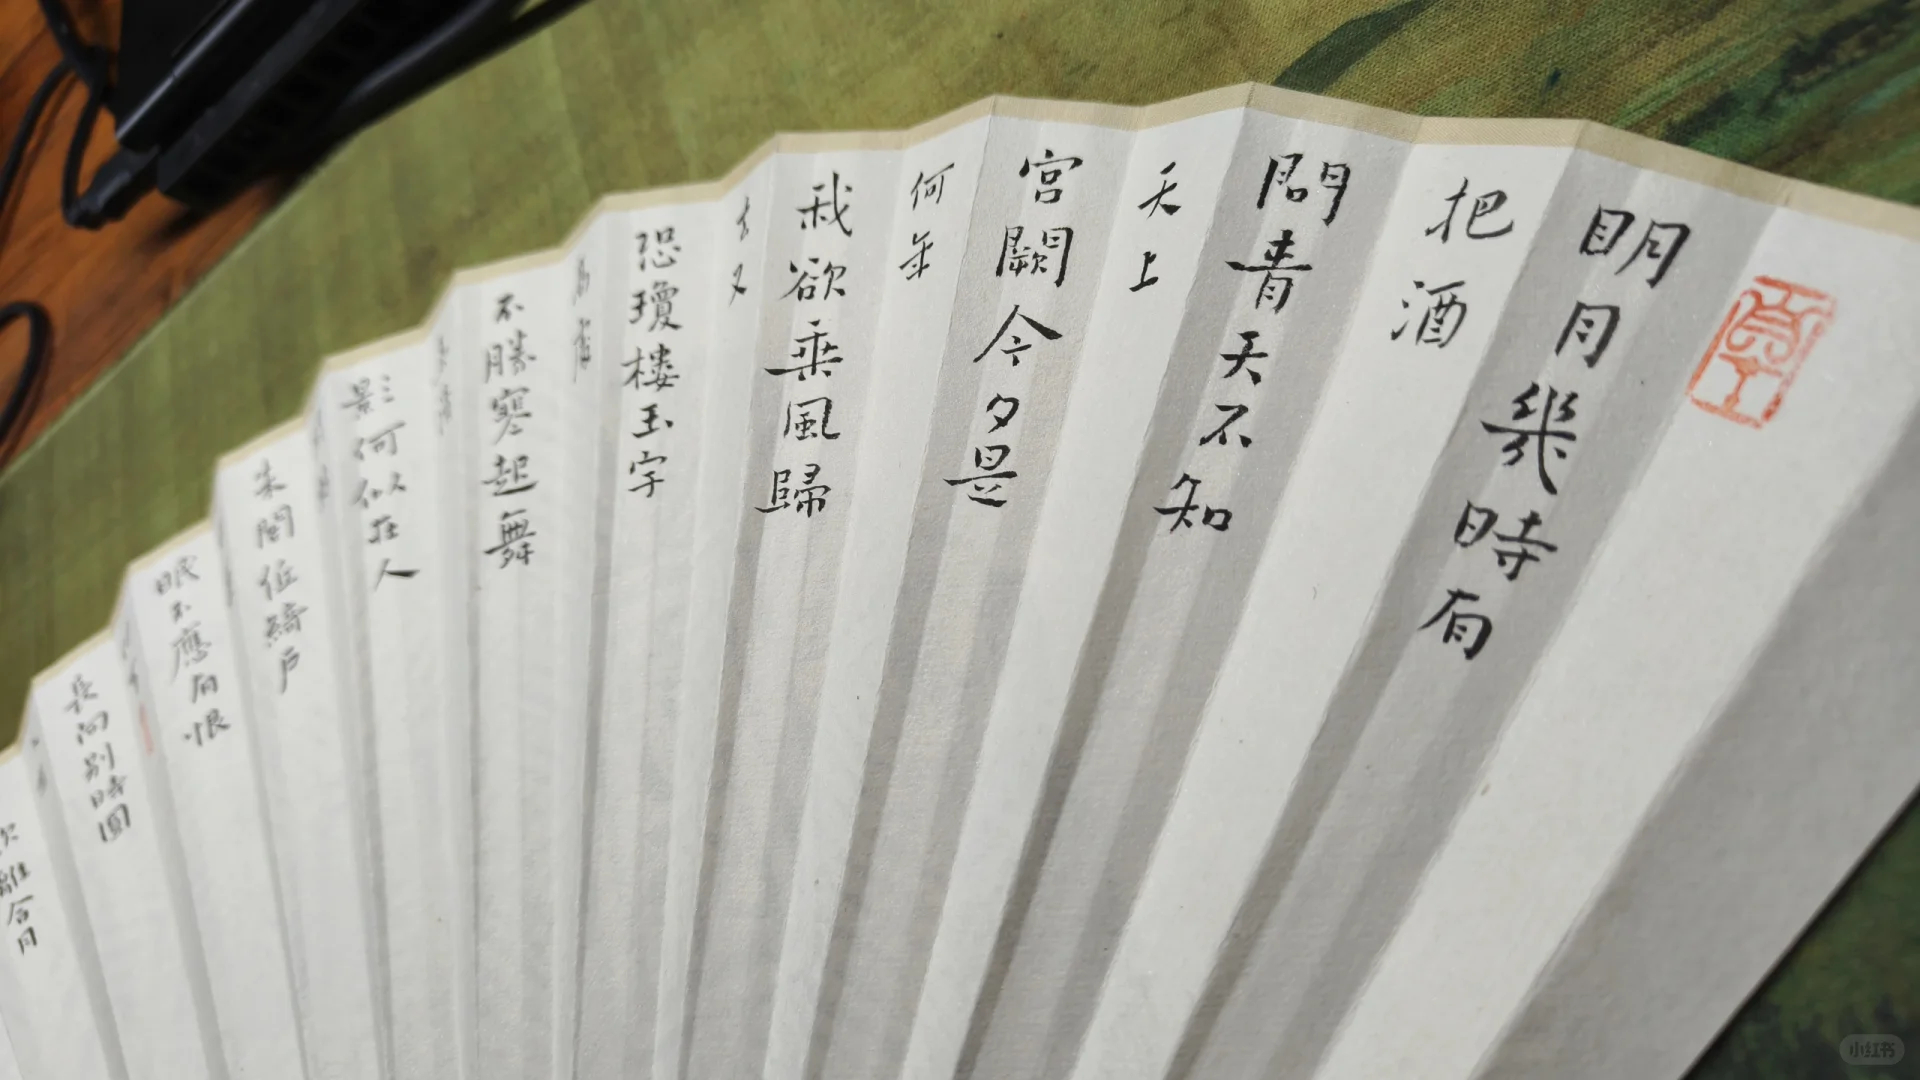 明月幾時有
把酒
問青天不知
天上
宮闕今夕是
何年
我欲乘風歸
去又
恐瓊樓玉宇
高處
不勝寒起舞
弄清
影何似在人
朱閣低綺戶
眠不應有恨
長向別時圓
離合月
小红书